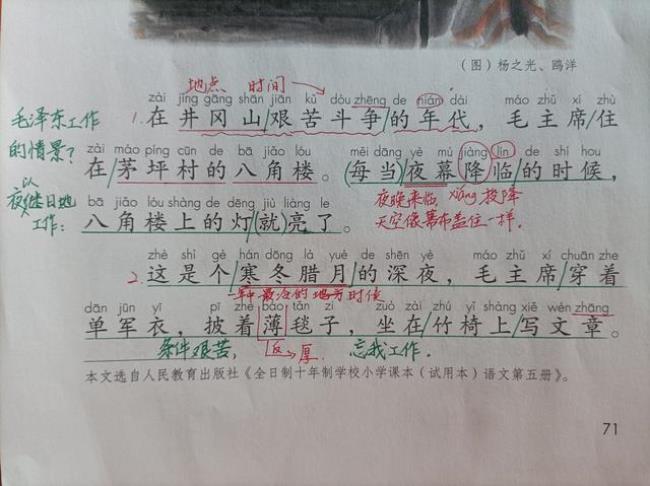 (图) 杨之光、鸥洋
地点 时间
zài jǐng gāng shān jiān kǔ dòu zhēng de nián dài máo zhǔ xí zhù
毛泽东工作 1. 在井冈山/艰苦斗争/的年代，毛主席/住
zài máo píng cūn de bā jiǎo lóu měi dāng yè mù jiàng lín de shí hou
的情景? 在/茅坪村的八角楼。(每当)夜幕降临/的时候，
以
夜晚来临. xiáng 投降
bā jiǎo lóu shàng de dēng jiù liàng le
夜继日地 八角楼上的灯/(就)亮了。 天空像幕布盖住一样.
工作:
zhè shì gè hán dōng là yuè de shēn yè máo zhǔ xí chuān zhe
2. 这是个/寒冬腊月/的深夜，毛主席/穿着
一年中最冷的时候
dān jūn yī pī zhe báo tǎn zi zuò zài zhú yǐ shàng xiě wén zhāng
单军衣，披着薄毯子，坐在/竹椅上/写文章。
条件艰苦, 反→厚. 忘我工作.
本文选自人民教育出版社《全日制十年制学校小学课本（试用本）语文第五册》。
71